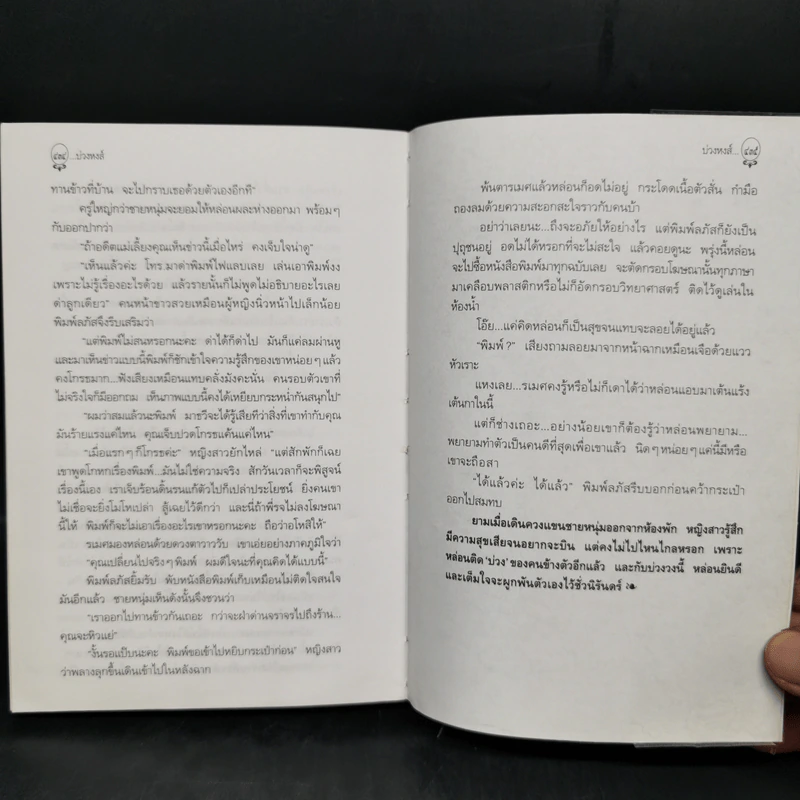 ๔๓๔
...บ่วงหงส์
ทานข้าวที่บ้าน จะไปกราบเธอด้วยตัวเองอีกที"
ครู่ใหญ่กว่าชายหนุ่มจะยอมให้หล่อนผละห่างออกมา พร้อมๆ
กับออกปากว่า
"ถ้าอดีตแม่เลี้ยงคุณเห็นข่าวนี้เมื่อไหร่ คงเจ็บใจน่าดู"
"เห็นแล้วค่ะ โทร.มาด่าพิมพ์ไฟแลบเลย เล่นเอาพิมพ์งง
เพราะไม่รู้เรื่องอะไรด้วย แล้วรายนั้นก็ไม่พูดไม่อธิบายอะไรเลย
ด่าลูกเดียว" คนหน้าขาวสวยเหมือนผู้หญิงนิ่วหน้าไปเล็กน้อย
พิมพ์ลภัสจึงรีบเสริมว่า
"แต่พิมพ์ไม่สนหรอกนะคะ ด่าได้ก็ด่าไป มันก็แค่ลมผ่านหู
และมาเห็นข่าวแบบนี้พิมพ์ก็ชักเข้าใจความรู้สึกของเขาหน่อยๆ แล้ว
คงโกรธมาก...ฟังเสียงเหมือนแทบคลั่งมังคะนั่น คนรอบตัวเขาที่
ไม่จริงใจก็มีออกถม เห็นภาพแบบนี้คงได้เหยียบกระหน่ำกันสนุกไป"
"ผมว่าสมแล้วนะพิมพ์ มาธวีจะได้รู้เสียทีว่าสิ่งที่เขาทำกับคุณ
มันร้ายแรงแค่ไหน คุณเจ็บปวดโกรธแค้นแค่ไหน"
"เมื่อแรกๆ ก็โกรธค่ะ" หญิงสาวยักไหล่ "แต่สักพักก็เฉย
เขาพูดโกหกเรื่องพิมพ์...มันไม่ใช่ความจริง สักวันเวลาก็จะพิสูจน์
เรื่องนี้เอง เราเจ็บร้อนดิ้นรนแก้ตัวไปก็เปล่าประโยชน์ ยิ่งคนเขา
ไม่เชื่อจะยิ่งโมโหเปล่า สู้เฉยไว้ดีกว่า และนี่ถ้าพี่รจไม่ลงโฆษณา
นี้ให้ พิมพ์ก็จะไม่เอาเรื่องอะไรเขาหรอกนะคะ ถือว่าอโหสิให้"
รเมศมองหล่อนด้วยดวงตาวาววับ เขาเอ่ยอย่างภาคภูมิใจว่า
"คุณเปลี่ยนไปจริงๆ พิมพ์ ผมดีใจนะที่คุณคิดได้แบบนี้"
พิมพ์ลภัสยิ้มรับ พับหนังสือพิมพ์เก็บเหมือนไม่ติดใจสนใจ
มันอีกแล้ว ชายหนุ่มเห็นดังนั้นจึงชวนว่า
"เราออกไปทานข้าวกันเถอะ กว่าจะฝ่าด่านจราจรไปถึงร้าน...
คุณจะหิวแย่"
"งั้นรอแป๊บนะคะ พิมพ์ขอเข้าไปหยิบกระเป๋าก่อน" หญิงสาว
ว่าพลางลุกขึ้นเดินเข้าไปในหลังฉาก
บ่วงหงส์...
๔๓๕
พ้นตารเมศแล้วหล่อนก็อดไม่อยู่ กระโดดเนื้อตัวสั่น กำมือ
ถองลมด้วยความสะอกสะใจราวกับคนบ้า
อย่าว่าเลยนะ...ถึงจะอภัยให้อย่างไร แต่พิมพ์ลภัสก็ยังเป็น
ปุถุชนอยู่ อดไม่ได้หรอกที่จะไม่สะใจ แล้วคอยดูนะ พรุ่งนี้หล่อน
จะไปซื้อหนังสือพิมพ์มาทุกฉบับเลย จะตัดกรอบโฆษณานั้นทุกภาษา
มาเคลือบพลาสติกหรือไม่ก็อัดกรอบวิทยาศาสตร์ ติดไว้ดูเล่นใน
ห้องน้ำ
โอ๊ย...แค่คิดหล่อนก็เป็นสุขจนแทบจะลอยได้อยู่แล้ว
"พิมพ์?" เสียงถามลอยมาจากหน้าฉากเหมือนเจือด้วยแวว
หัวเราะ
แหงเลย...รเมศคงรู้หรือไม่ก็เดาได้ว่าหล่อนแอบมาเต้นแร้ง
เต้นกาในนี้
แต่ก็ช่างเถอะ...อย่างน้อยเขาก็ต้องรู้ว่าหล่อนพยายาม...
พยายามทำตัวเป็นคนดีที่สุดเพื่อเขาแล้ว นิดๆ หน่อยๆ แค่นี้มีหรือ
เขาจะถือสา
"ได้แล้วค่ะ ได้แล้ว" พิมพ์ลภัสรีบบอกก่อนคว้ากระเป๋า
ออกไปสมทบ
ยามเมื่อเดินควงแขนชายหนุ่มออกจากห้องพัก หญิงสาวรู้สึก
มีความสุขเสียจนอยากจะบิน แต่คงไม่ไปไหนไกลหรอก เพราะ
หล่อนติด 'บ่วง' ของคนข้างตัวอีกแล้ว และกับบ่วงวงนี้ หล่อนยินดี
และเต็มใจจะผูกพันตัวเองไว้ชั่วนิรันดร์